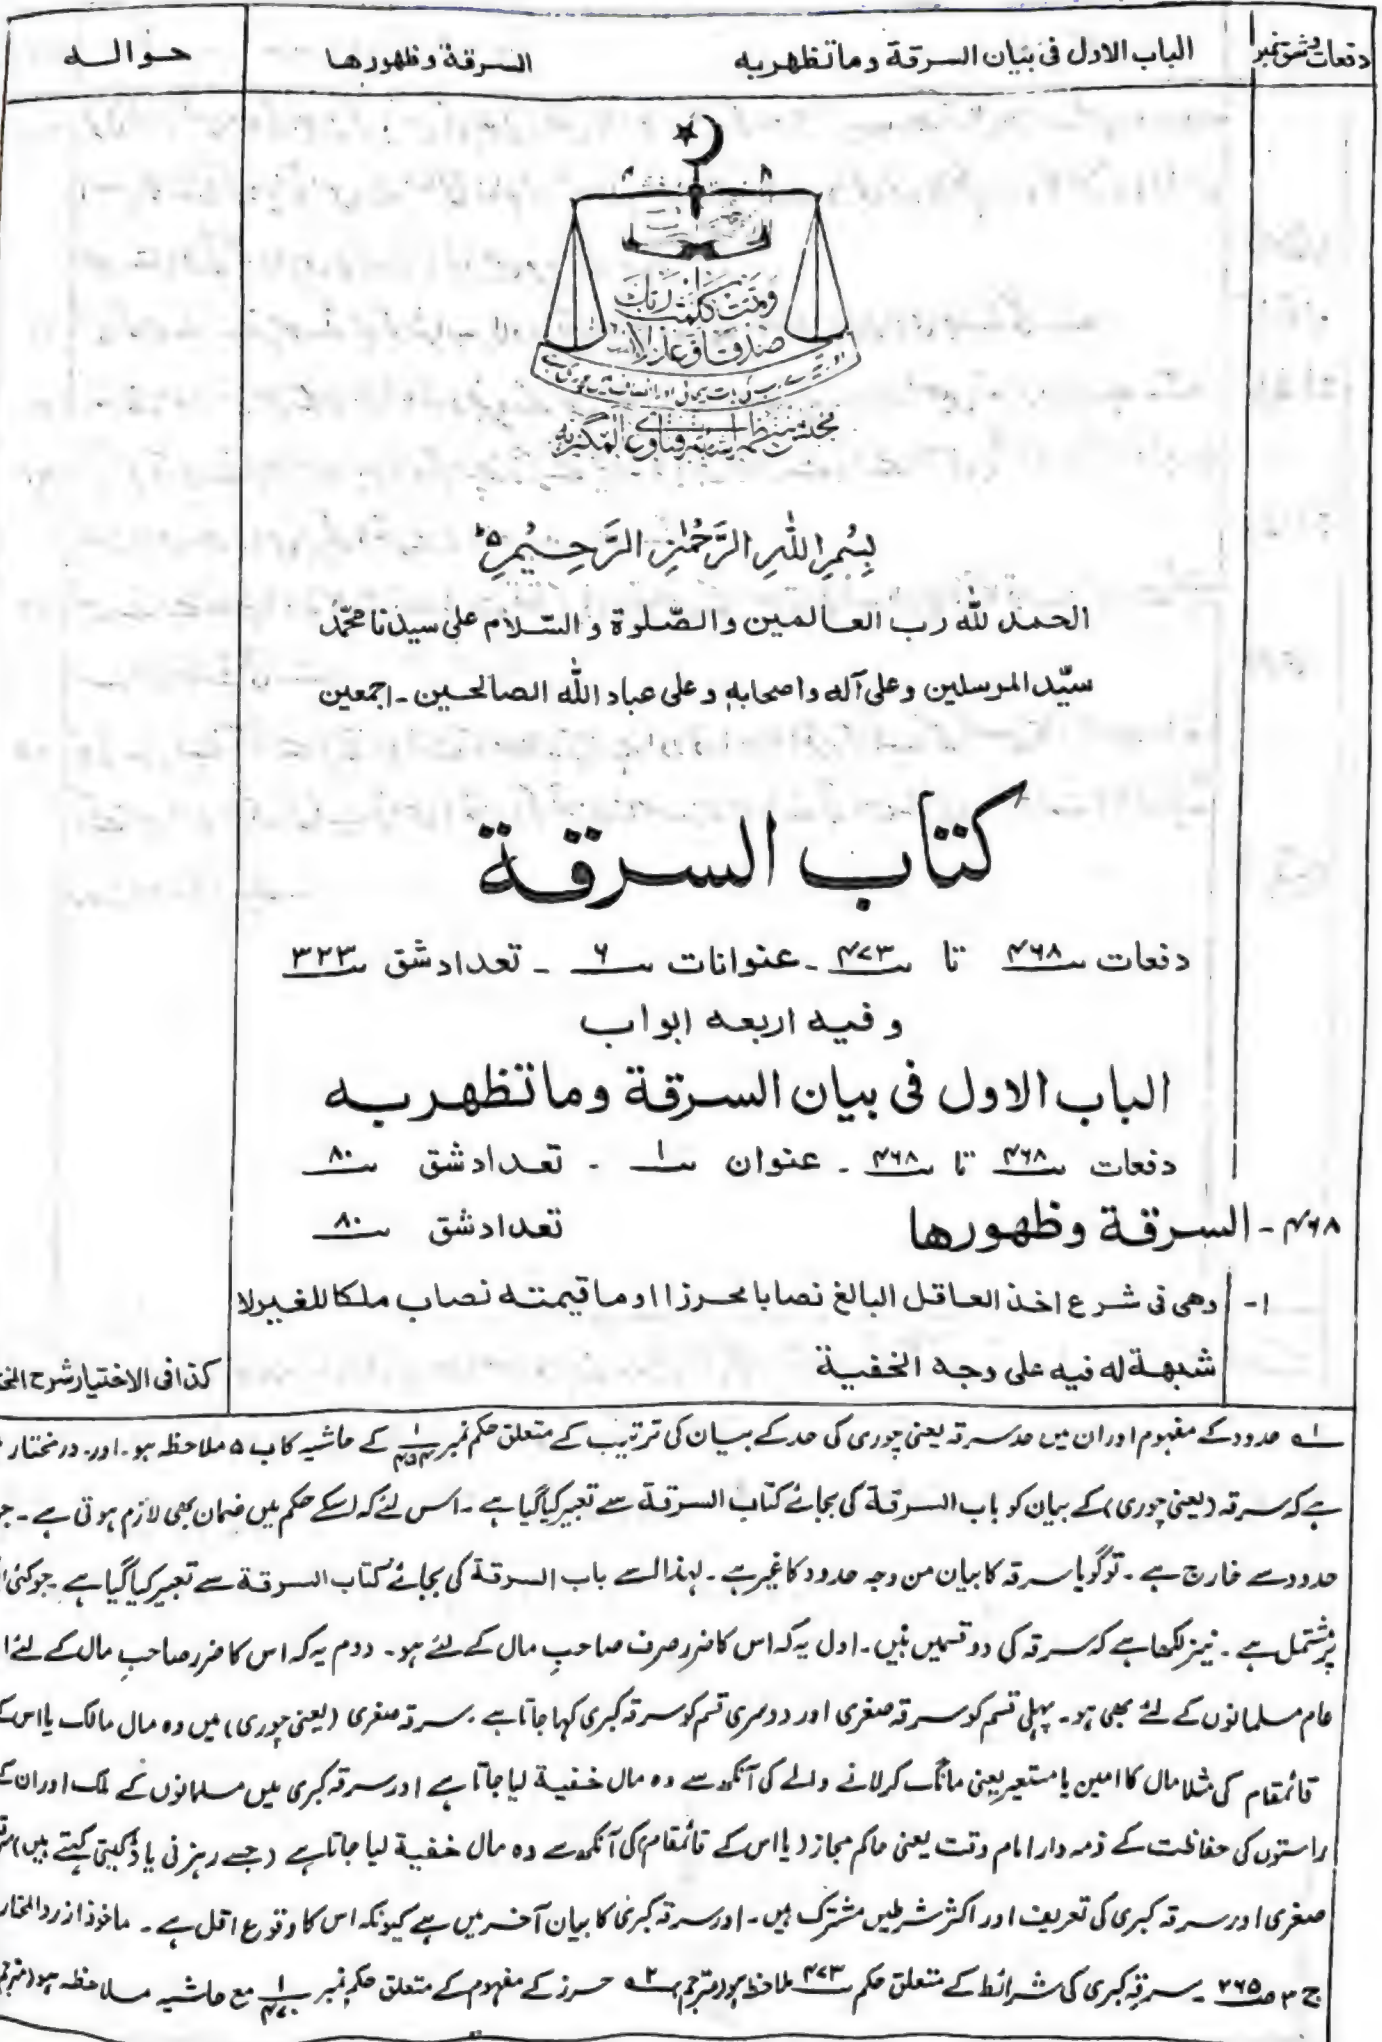 دفعات وشق نمبر | الباب الاول فی بیان السرقة وما تظهر به | السرقة وظهورها | حوالہ
وتمت کلمت ربک
صدقا وعدلا
بِسْمِ اللّٰهِ الرَّحْمٰنِ الرَّحِیْمِ ۵
الحمد للّٰه رب العالمین والصّلوة والسّلام علی سیدنا محمّد
سیّد المرسلین وعلی آله واصحابه وعلی عباد اللّٰه الصالحین ۔ اجمعین
کتاب السرقة
دفعات ۴۶۸ تا ۴۷۳ ۔ عنوانات ۶ ۔ تعداد شق ۳۲۳
وفیه اربعه ابواب
الباب الاول فی بیان السرقة وما تظهر به
دفعات ۴۶۸ تا ۴۶۸ ۔ عنوان ۱ ۔ تعداد شق ۸۰
۴۶۸ ۔ السرقة وظهورها تعداد شق ۸۰
۱۔ وهی فی شرع اخذ العاقل البالغ نصابا محرزا او ما قیمته نصاب ملکا للغیر لا
شبهة له فیه علی وجه الخفیة کذا فی الاختیار شرح
۱ حدود کے مفہوم اور ان میں حد سرقہ یعنی چوری کی حد کے بیان کی ترتیب کے متعلق حکم نمبر کے حاشیہ کا ب ۵ ملاحظہ ہو ۔ اور در مختار
ہے کہ سرقہ (یعنی چوری) کے بیان کو باب السرقة کی بجائے کتاب السرقة سے تعبیر کیا گیا ہے ۔ اس لئے کہ اسکے حکم میں ضمان بھی لازم ہوتی ہے ۔
حدود سے خارج ہے ۔ تو گویا سرقہ کا بیان من وجہ حدود کا غیر ہے ۔ لہذا اسے باب السرقة کی بجائے کتاب السرقة سے تعبیر کیا گیا ہے ۔ جو کئی
پر مشتمل ہے ۔ نیز لکھا ہے کہ سرقہ کی دو قسمیں ہیں ۔ اول یہ کہ اس کا ضرر صرف صاحبِ مال کے لئے ہو ۔ دوم یہ کہ اس کا ضرر صاحبِ مال کے لئے
عام مسلمانوں کے لئے بھی ہو ۔ پہلی قسم کو سرقہ صغری اور دوسری قسم کو سرقہ کبری کہا جاتا ہے ۔ سرقہ صغری (یعنی چوری) میں وہ مال مالک یا اس کے
قائمقام کی مثلا مال کا امین یا مستعیر یعنی مانگ کر لانے والے کی آنکھ سے وہ مال خفیة لیا جاتا ہے اور سرقہ کبری میں مسلمانوں کے ملک اور ان کے
راستوں کی حفاظت کے ذمہ دار امام وقت یعنی حاکم مجاز (یا اس کے قائمقام) کی آنکھ سے وہ مال خفیة لیا جاتا ہے (جسے رہزنی یا ڈکیتی کہتے ہیں)
صغری اور سرقہ کبری کی تعریف اور اکثر شرطیں مشترک ہیں ۔ اور سرقہ کبری کا بیان آخر میں ہے کیونکہ اس کا وقوع اقل ہے ۔ ماخوذ از رد المختار
ج ۳ ص ۲۶۵ ۔ سرقہ کبری کی شرائط کے متعلق حکم ۴۷۳ ملاحظہ ہو (مترجم) ۲ حرز کے مفہوم کے متعلق حکم نمبر ۱/۴۷۰ مع حاشیہ ملاحظہ ہو